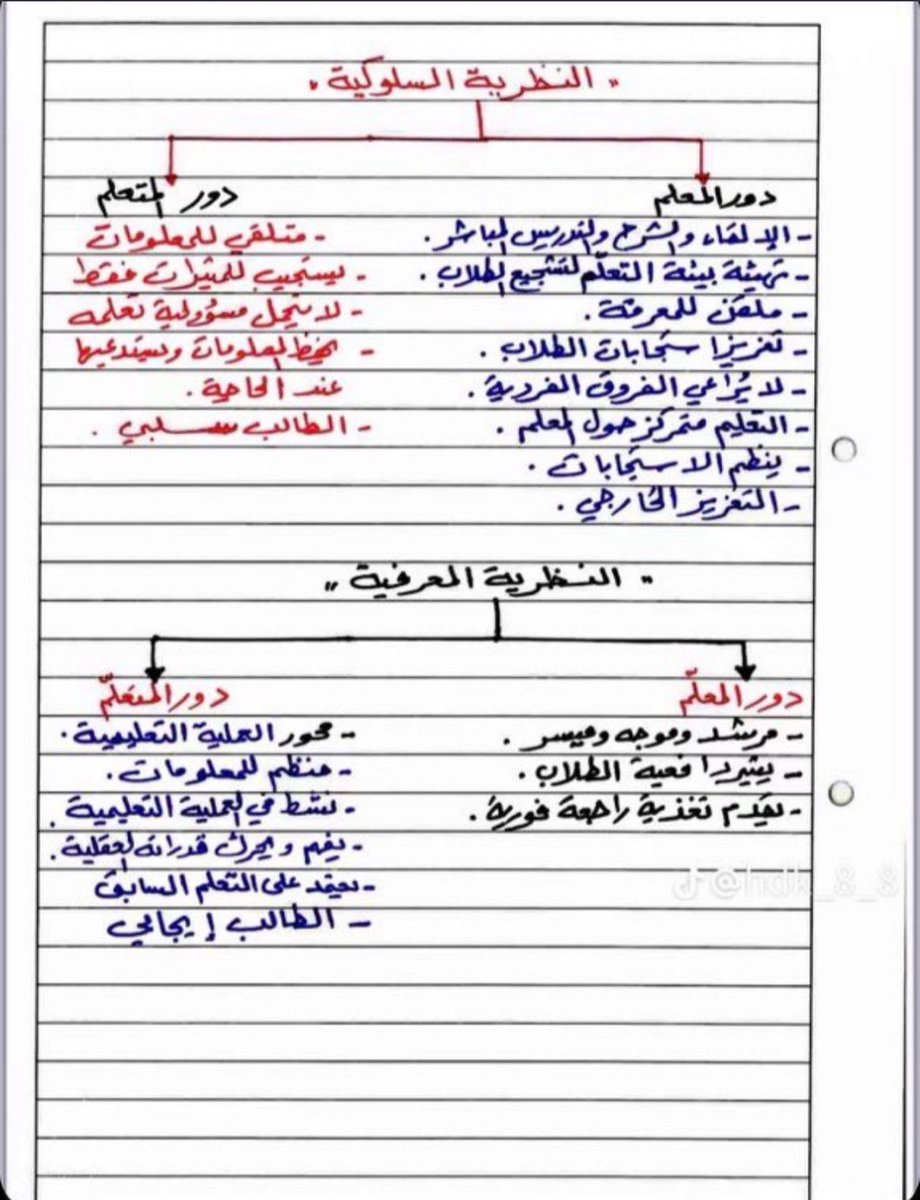 " النظرية السلوكية "
دور المعلم
- الإلقاء والشرح والتدريس المباشر.
- تهيئة بيئة التعلّم لتشجيع الطلاب.
- ملقن للمعرفة.
- تعزيز استجابات الطلاب.
- لا يُراعي الفروق الفردية.
- التعليم متمركز حول المعلم.
- ينظم الاستجابات.
- التعزيز الخارجي.
دور المتعلم
- متلقي للمعلومات
- يستجيب للمثيرات فقط
- لا يتحمل مسؤولية تعلمه
- يحفظ المعلومات ويستدعيها
عند الحاجة.
- الطالب سلبي.
" النظرية المعرفية "
دور المعلّم
- مرشد وموجه وميسر.
- يثير دافعية الطلاب.
- يقدم تغذية راجعة فورية.
دور المتعلّم
- محور العملية التعليمية.
- منظم للمعلومات.
- نشط في العملية التعليمية.
- يفهم ويحرك قدراته العقلية.
- يعتمد على التعلم السابق
- الطالب إيجابي
@hdk_8_8